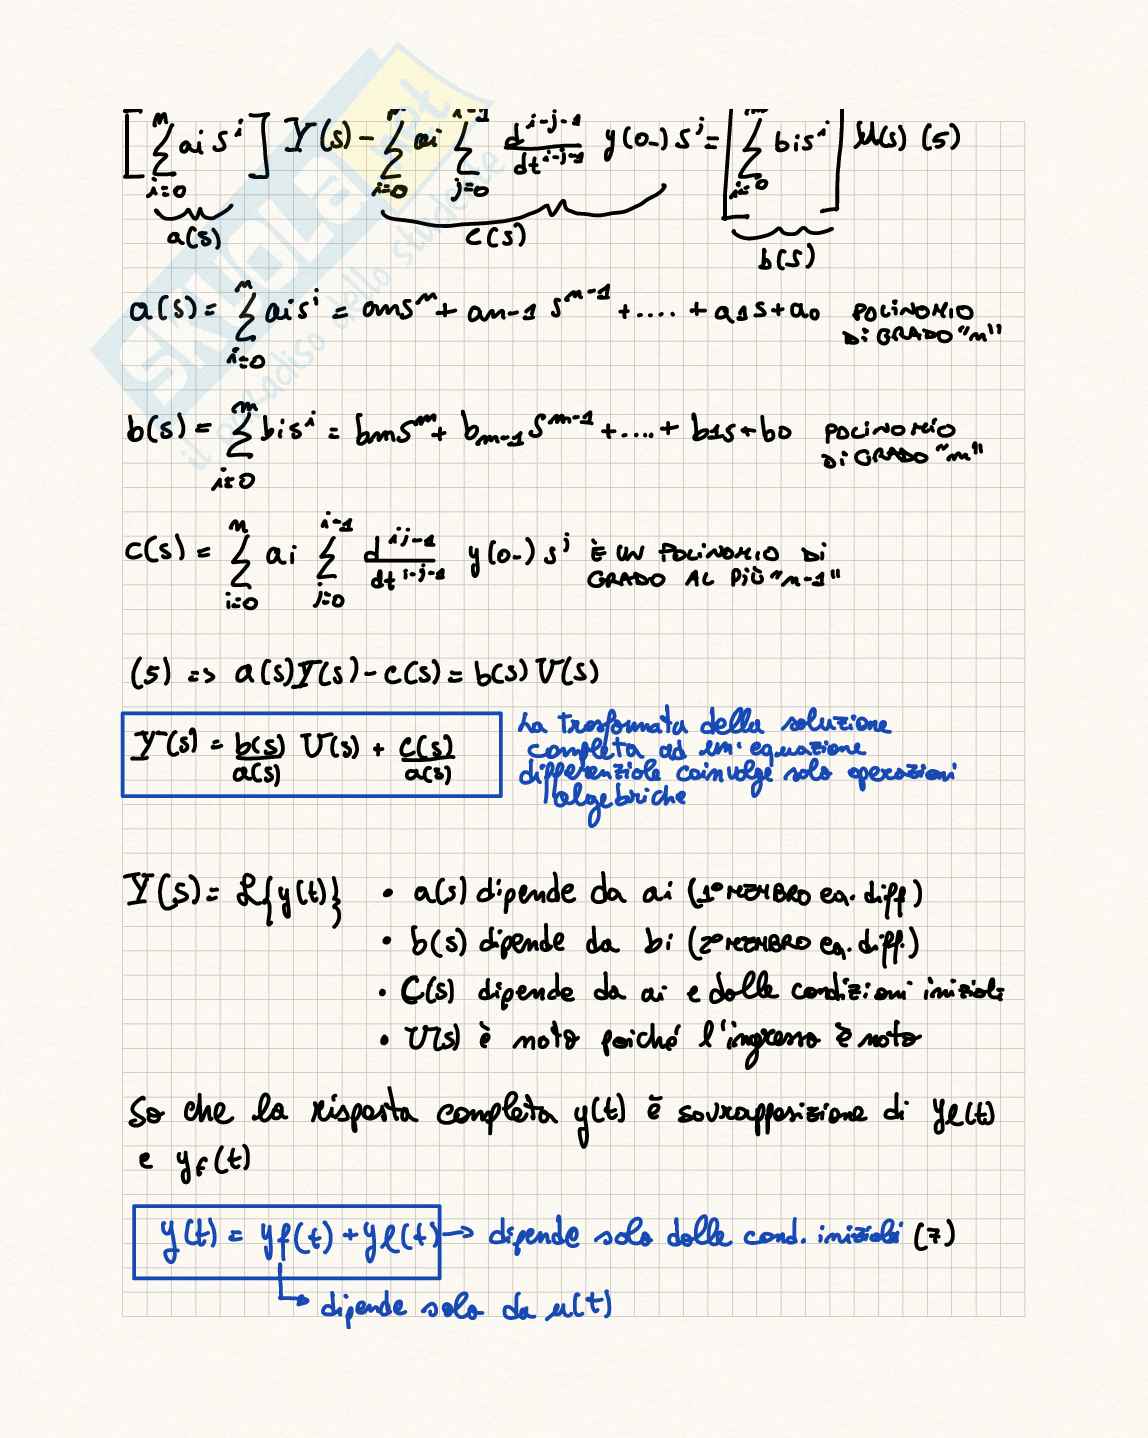 [ n Σ i=0 ai s^i ] Y(s) - n Σ i=0 ai i-1 Σ j=0 d^{i-j-1}/dt^{i-j-1} y(0-) s^j = [ m Σ i=0 bi s^i ] U(s) (5)
a(s) c(s) b(s)
a(s) = n Σ i=0 ai s^i = an s^n + an-1 s^{n-1} + .... + a1s + a0 POLINOMIO
DI GRADO "n"
b(s) = m Σ i=0 bi s^i = bm s^m + bm-1 s^{m-1} + .... + b1s + b0 POLINOMIO
DI GRADO "m"
c(s) = n Σ i=0 ai i-1 Σ j=0 d^{ij-1}/dt^{i-j-1} y(0-) s^j È UN POLINOMIO DI
GRADO AL PIÙ "n-1"
(5) => a(s)Y(s) - c(s) = b(s) U(s)
Y(s) = b(s)/a(s) U(s) + c(s)/a(s)
La trasformata della soluzione
completa ad un'equazione
differenziale coinvolge solo operazioni
algebriche
Y(s) = L{y(t)} • a(s) dipende da ai (1° MEMBRO eq. diff)
• b(s) dipende da bi (2° MEMBRO eq. diff.)
• C(s) dipende da ai e dalle condizioni iniziali
• U(s) è noto poiché l'ingresso è noto
So che la risposta completa y(t) è sovrapposizione di yl(t)
e yf(t)
y(t) = yf(t) + yl(t) → dipende solo dalle cond. iniziali (7)
→ dipende solo da u(t)
SKUOLA.net
il paradiso dello studente